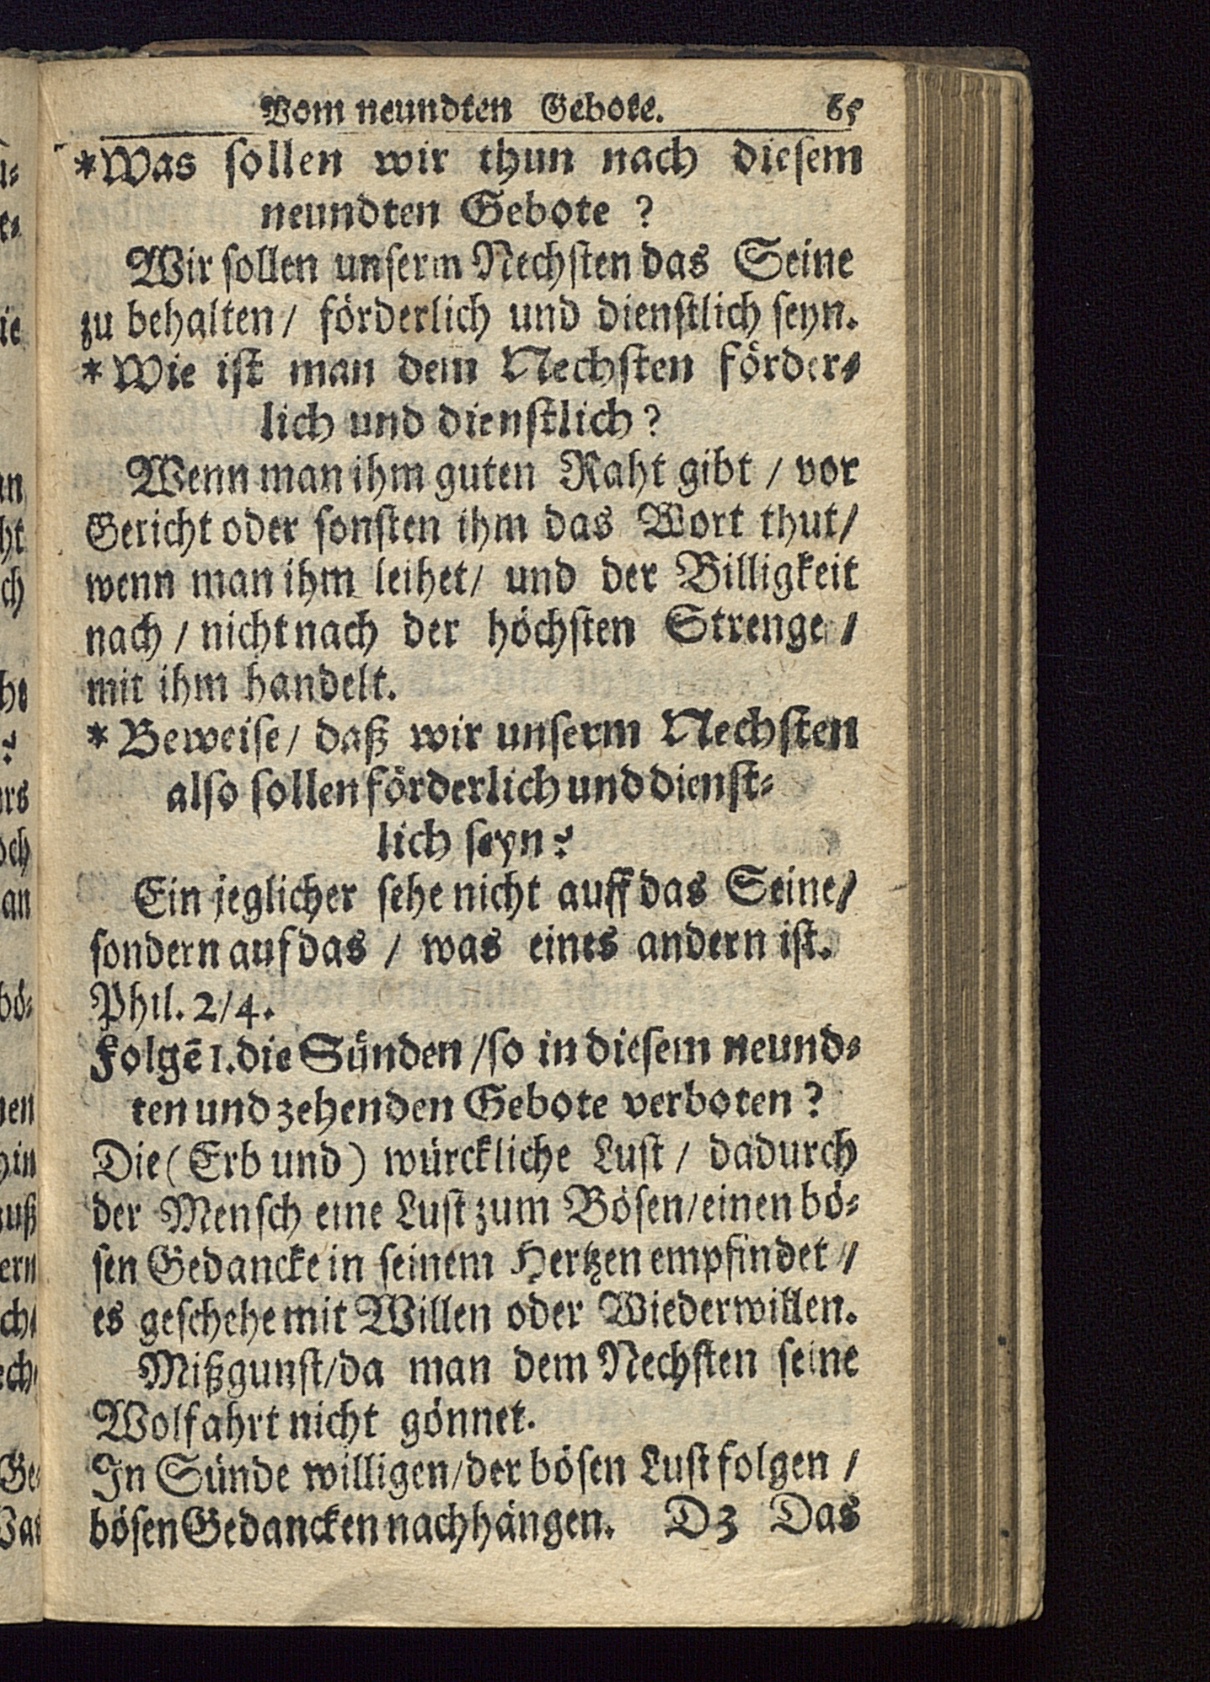 Vom neundten Gebote. 65
*Was sollen wir thun nach diesem
neundten Gebote ?
Wir sollen unserm Nechsten das Seine
zu behalten / förderlich und dienstlich seyn.
* Wie ist man dem Nechsten förder-
lich und dienstlich?
Wenn man ihm guten Raht gibt / vor
Gericht oder sonsten ihm das Wort thut /
wenn man ihm leihet / und der Billigkeit
nach / nicht nach der höchsten Strenge /
mit ihm handelt.
* Beweise / daß wir unserm Nechsten
also sollen förderlich und dienst-
lich seyn?
Ein jeglicher sehe nicht auff das Seine /
sondern auf das / was eines andern ist.
Phil. 2/4.
Folgē 1. die Sünden / so in diesem neund-
ten und zehenden Gebote verboten ?
Die (Erb und) würckliche Lust / dadurch
der Mensch eine Lust zum Bösen / einen bö-
sen Gedancke in seinem Hertzen empfindet /
es geschehe mit Willen oder Wiederwillen.
Mißgunst / da man dem Nechsten seine
Wolfahrt nicht gönnet.
In Sünde willigen / der bösen Lust folgen /
bösen Gedancken nachhängen. D3 Das